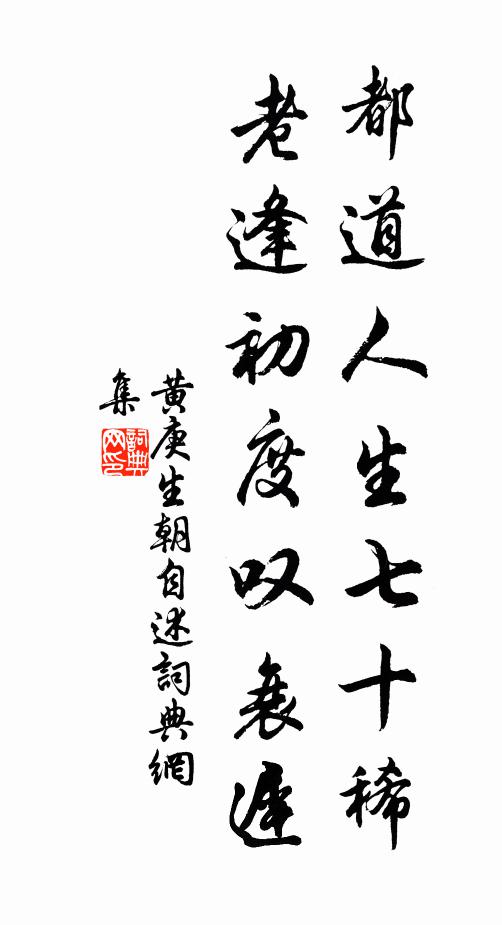 都道人生七十稀
老逢初度叹衰遲
黄庚生朝自述詞典網
集
詞典
网印